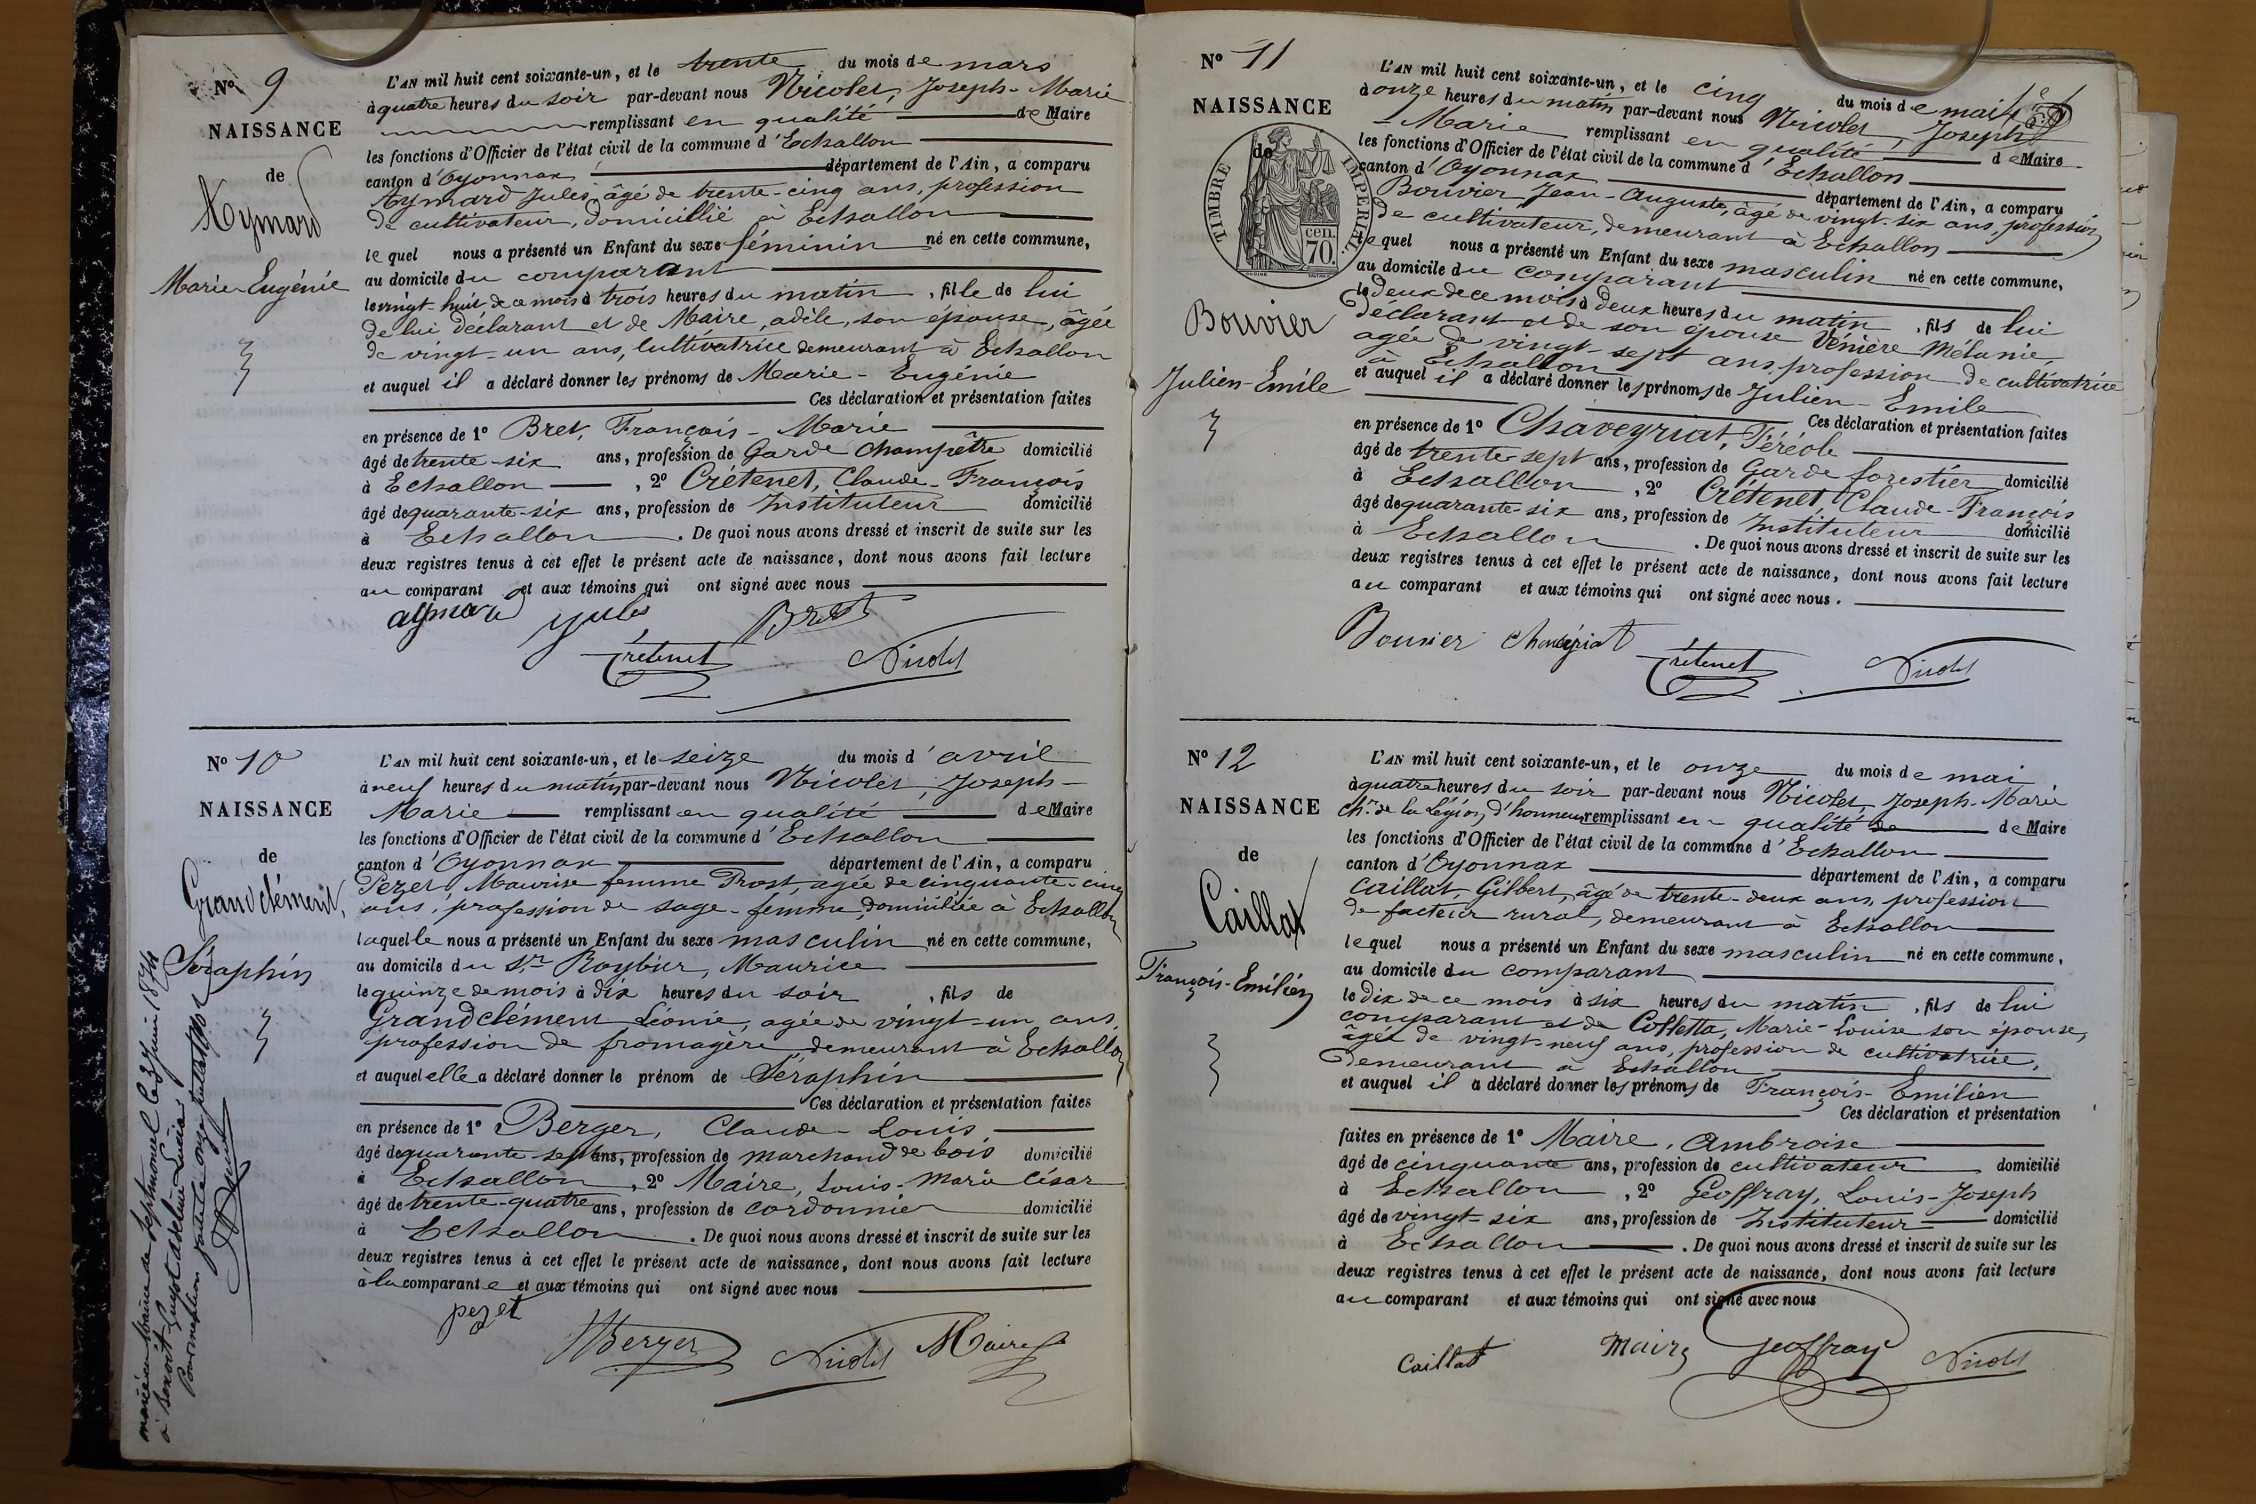 No 9
NAISSANCE
de
Aymard
Marie-Eugénie
L'AN mil huit cent soixante-un, et le trente du mois de mars
à quatre heures du soir par-devant nous Nicolet, Joseph-Marie
remplissant en qualité de Maire
les fonctions d'Officier de l'état civil de la commune d'Echallon
canton d'Oyonnax département de l'Ain, a comparu
Aymard Jules, âgé de trente-cinq ans, profession
de cultivateur, domicillié à Echallon
lequel nous a présenté un Enfant du sexe féminin né en cette commune,
au domicile du comparant
le vingt-huit de ce mois à trois heures du matin, fille de lui
de lui déclarant et de Maire, adèle, son épouse, âgée
de vingt-un ans, cultivatrice demeurant à Echallon
et auquel il a déclaré donner les prénoms de Marie-Eugénie
Ces déclaration et présentation faites
en présence de 1° Bret, François-Marie
âgé de trente-six ans, profession de Garde champêtre domicilié
à Echallon, 2° Crétenet, Claude-François
âgé de quarante-six ans, profession de Instituteur domicilié
à Echallon. De quoi nous avons dressé et inscrit de suite sur les
deux registres tenus à cet effet le présent acte de naissance, dont nous avons fait lecture
au comparant et aux témoins qui ont signé avec nous
aymard jules Bret
Crétenet Nicolet
No 10
NAISSANCE
de
Grandclément,
Séraphin
L'AN mil huit cent soixante-un, et le seize du mois d'avril
à neuf heures du matin par-devant nous Nicolet, Joseph-
Marie remplissant en qualité de Maire
les fonctions d'Officier de l'état civil de la commune d'Echallon
canton d'Oyonnax département de l'Ain, a comparu
Pezet, Maurise femme Prost, agée de cinquante-cinq
ans, profession de sage-femme, domiciliée à Echallon
laquelle nous a présenté un Enfant du sexe masculin né en cette commune,
au domicile du Sr Roybier, Maurice
le quinze de mois à dix heures du soir, fils de
Grandclément Léonie, agée de vingt-un ans,
profession de fromagère demeurant à Echallon
et auquel elle a déclaré donner le prénom de Séraphin
Ces déclaration et présentation faites
en présence de 1° Berger, Claude-Louis
âgé de quarante-sept ans, profession de marchand de bois domicilié
à Echallon, 2° Maire, Louis-Marie César
âgé de trente-quatre ans, profession de cordonnier domicilié
à Echallon. De quoi nous avons dressé et inscrit de suite sur les
deux registres tenus à cet effet le présent acte de naissance, dont nous avons fait lecture
à la comparante et aux témoins qui ont signé avec nous
pezet
Berger Nicolet Maire
marié en Mairie de Septmoncel le 27 juin 1874
à Benoit-Guyot adeline-Lucie
Pour mention
No 11
NAISSANCE
de
TIMBRE IMPERIAL
cen. 70.
Bouvier
Julien-Emile
L'AN mil huit cent soixante-un, et le cinq du mois de mai
à onze heures du matin par-devant nous Nicolet, Joseph
-Marie remplissant en qualité de Maire
les fonctions d'Officier de l'état civil de la commune d'Echallon
canton d'Oyonnax département de l'Ain, a comparu
Bouvier Jean-Auguste, âgé de vingt-six ans, profession
de cultivateur, demeurant à Echallon
lequel nous a présenté un Enfant du sexe masculin né en cette commune,
au domicile du comparant
le deux de ce mois à deux heures du matin, fils de lui
déclarant et de son épouse Vénière Mélanie,
agée de vingt-sept ans, profession de cultivatrice
à Echallon
et auquel il a déclaré donner les prénoms de Julien-Emile
Ces déclaration et présentation faites
en présence de 1° Chaveyriat, Féréole
âgé de trente-sept ans, profession de Garde forestier domicilié
à Echallon, 2° Crétenet, Claude-François
âgé de quarante-six ans, profession de Instituteur domicilié
à Echallon. De quoi nous avons dressé et inscrit de suite sur les
deux registres tenus à cet effet le présent acte de naissance, dont nous avons fait lecture
au comparant et aux témoins qui ont signé avec nous.
Bouvier Chaveyriat Crétenet Nicolet
No 12
NAISSANCE
de
Caillat
François-Emilien
L'AN mil huit cent soixante-un, et le onze du mois de mai
à quatre heures du soir par-devant nous Nicolet, Joseph-Marie
Ch.er de la Légion d'honneur remplissant en qualité de de Maire
les fonctions d'Officier de l'état civil de la commune d'Echallon
canton d'Oyonnax département de l'Ain, a comparu
Caillat, Gilbert, âgé de trente-deux ans, profession
de facteur rural, demeurant à Echallon
lequel nous a présenté un Enfant du sexe masculin né en cette commune,
au domicile du comparant
le dix de ce mois à six heures du matin, fils de lui
comparant et de Colletta, Marie-Louise son épouse,
âgée de vingt-neuf ans, profession de cultivatrice,
demeurant à Echallon
et auquel il a déclaré donner les prénoms de François-Emilien
Ces déclaration et présentation
faites en présence de 1° Maire, Ambroise
âgé de cinquante ans, profession de cultivateur domicilié
à Echallon, 2° Geoffray, Louis-Joseph
âgé de vingt-six ans, profession de Instituteur domicilié
à Echallon. De quoi nous avons dressé et inscrit de suite sur les
deux registres tenus à cet effet le présent acte de naissance, dont nous avons fait lecture
au comparant et aux témoins qui ont signé avec nous
Caillat Maire Geoffray Nicolet